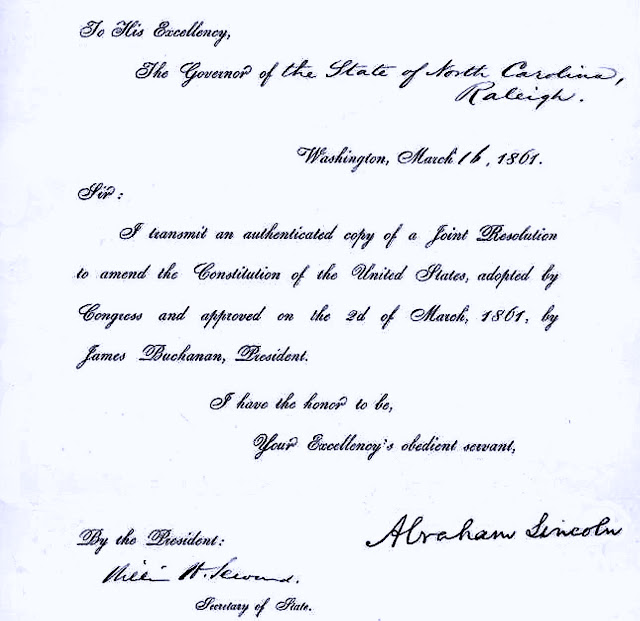 To His Excellency,
The Governor of the State of North Carolina,
Raleigh.
Washington, March 16, 1861.
Sir:
I transmit an authenticated copy of a Joint Resolution
to amend the Constitution of the United States, adopted by
Congress and approved on the 2d of March, 1861, by
James Buchanan, President.
I have the honor to be,
Your Excellency's obedient servant,
Abraham Lincoln
By the President:
William H. Seward.
Secretary of State.